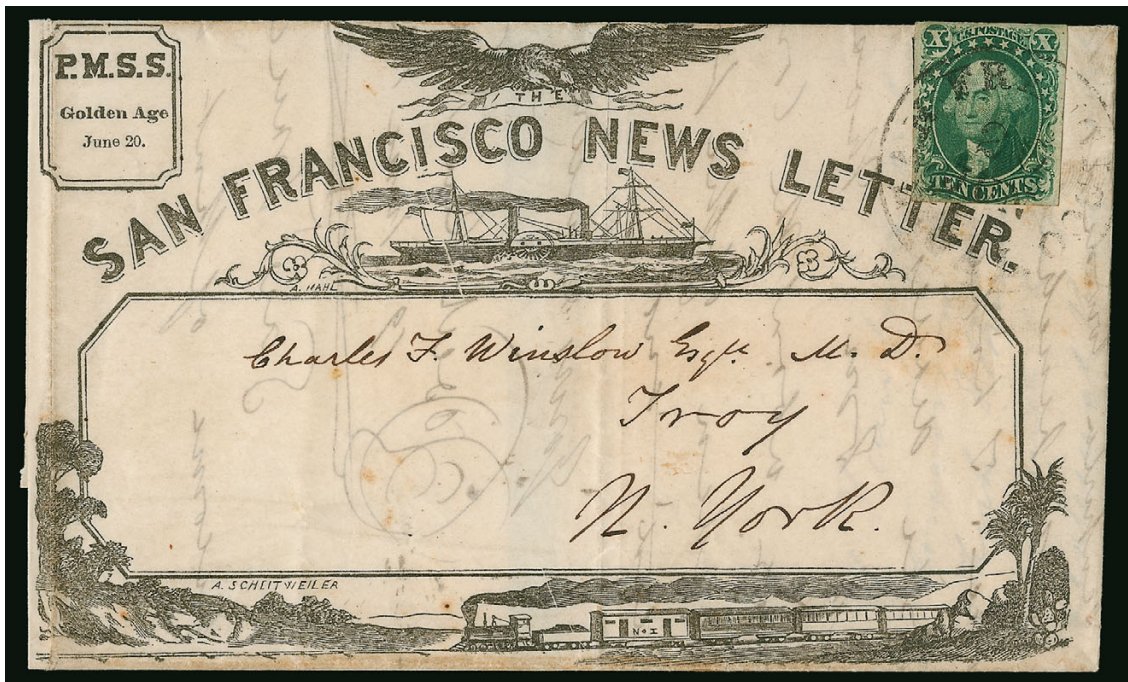 P.M.S.S.
Golden Age
June 20.
THE
SAN FRANCISCO NEWS LETTER.
X U.S. POSTAGE X
TEN CENTS
A. NAHL
Charles F. Winslow Esqr. M. D.
Troy
N. York.
A. SCHEITWEILER
No 1